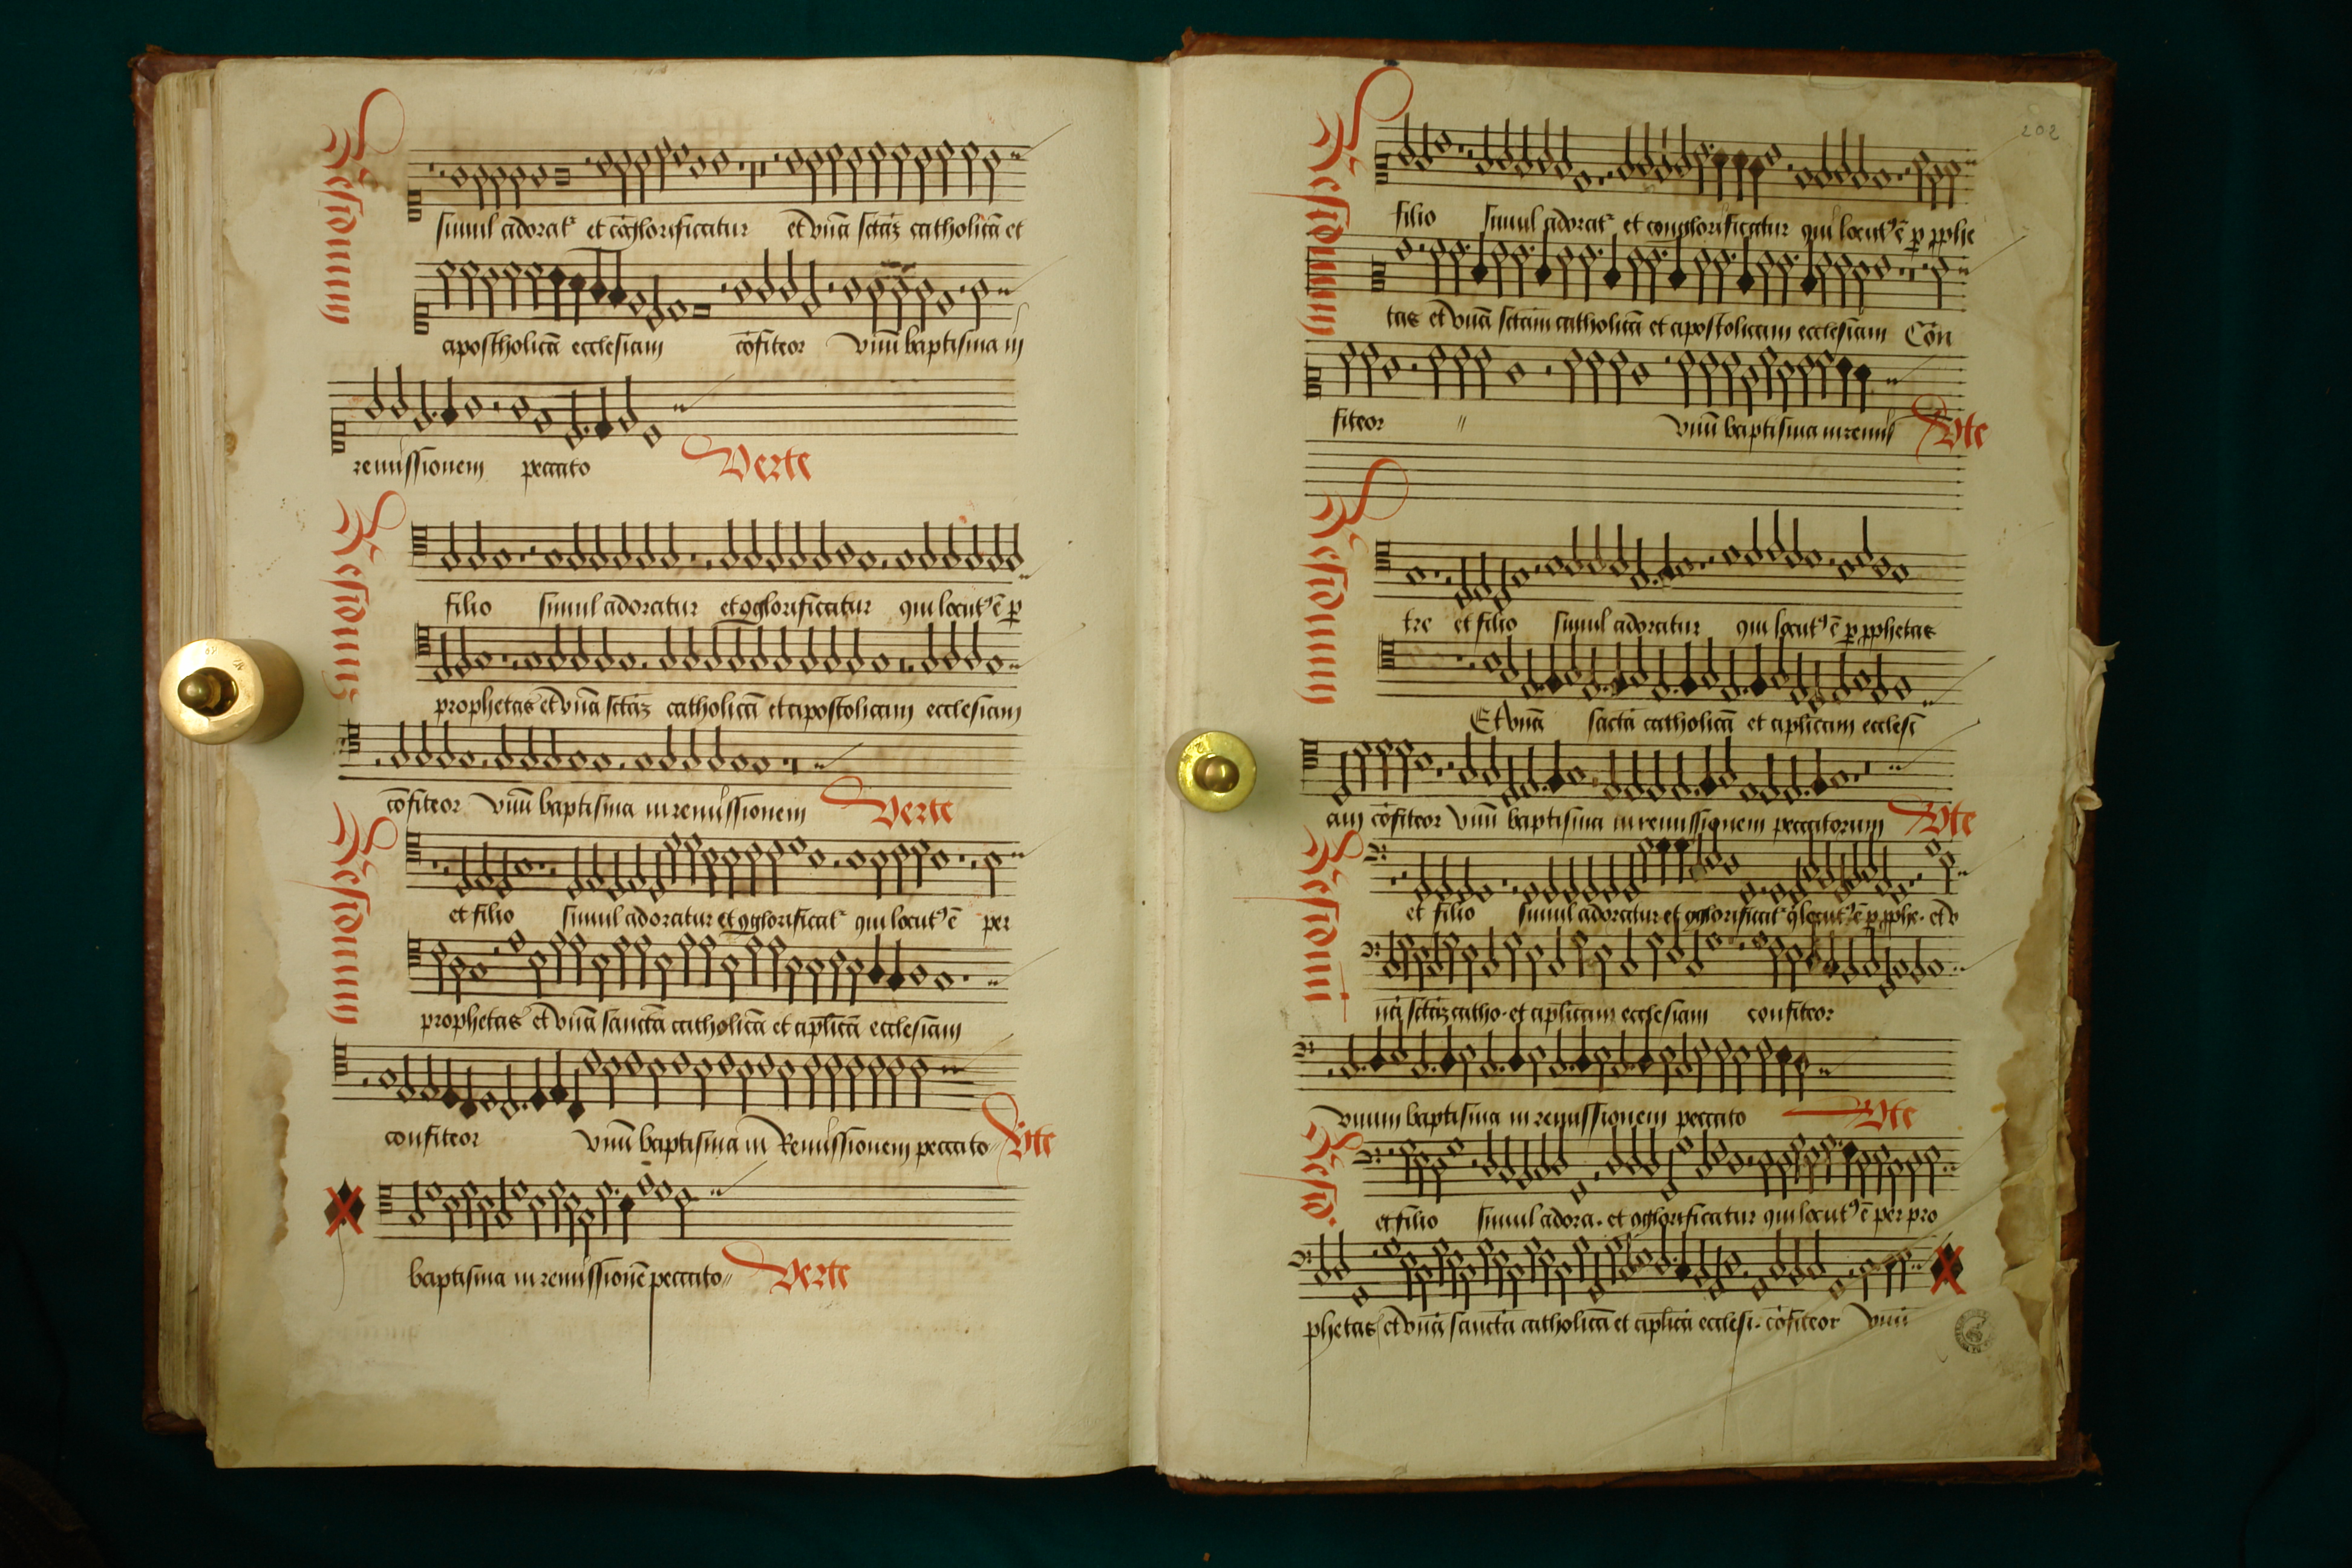 Residuum
simul adorat᷑ et cōglorificatur et vnā sctāȝ catholicā et
apostholicā ecclesiam cōfiteor vnū baptisma in
remissionem peccato
Verte
Residuum
filio simul adoratur et ꝯglorificatur qui locutꝰ ē ꝑ
prophetas et vnā sctāȝ catholicā et apostolicam ecclesiam
cōfiteor vnū baptisma in remissionem
Verte
Residuum
et filio simul adoratur et ꝯglorificat᷑ qui locutꝰ ē per
prophetas et vnā sanctā catholicā et aplicā ecclesiam
confiteor vnū baptisma in Remissionem peccato
Vte
baptisma in remissionē peccato
Verte
202
Residuum
filio simul adorat᷑ et conglorificatur qui locutꝰ ē ꝑ ꝓphe
tas et vnā sctam catholicā et apostolicam ecclesiam Con
fiteor " vnū baptisma in remiss
Vte
Residuum
tre et filio simul adoratur qui locutꝰ ē ꝑ ꝓphetas
Et vnā sactā catholicā et aplicam ecclesi
am cōfiteor vnū baptisma in remissionem peccatorum
Vte
Residuum
et filio simul adoratur et ꝯglorificat᷑ q locutꝰ ē ꝑ ꝓphe. et v
nā sctāȝ catho. et aplicam ecclesiam confiteor
vnum baptisma in remissionem peccato
Vte
Resid.
et filio simul adora. et ꝯglorificatur qui locutꝰ ē per pro
phetas et vnā sanctā catholicā et aplicā ecclesi. cōfiteor vnū